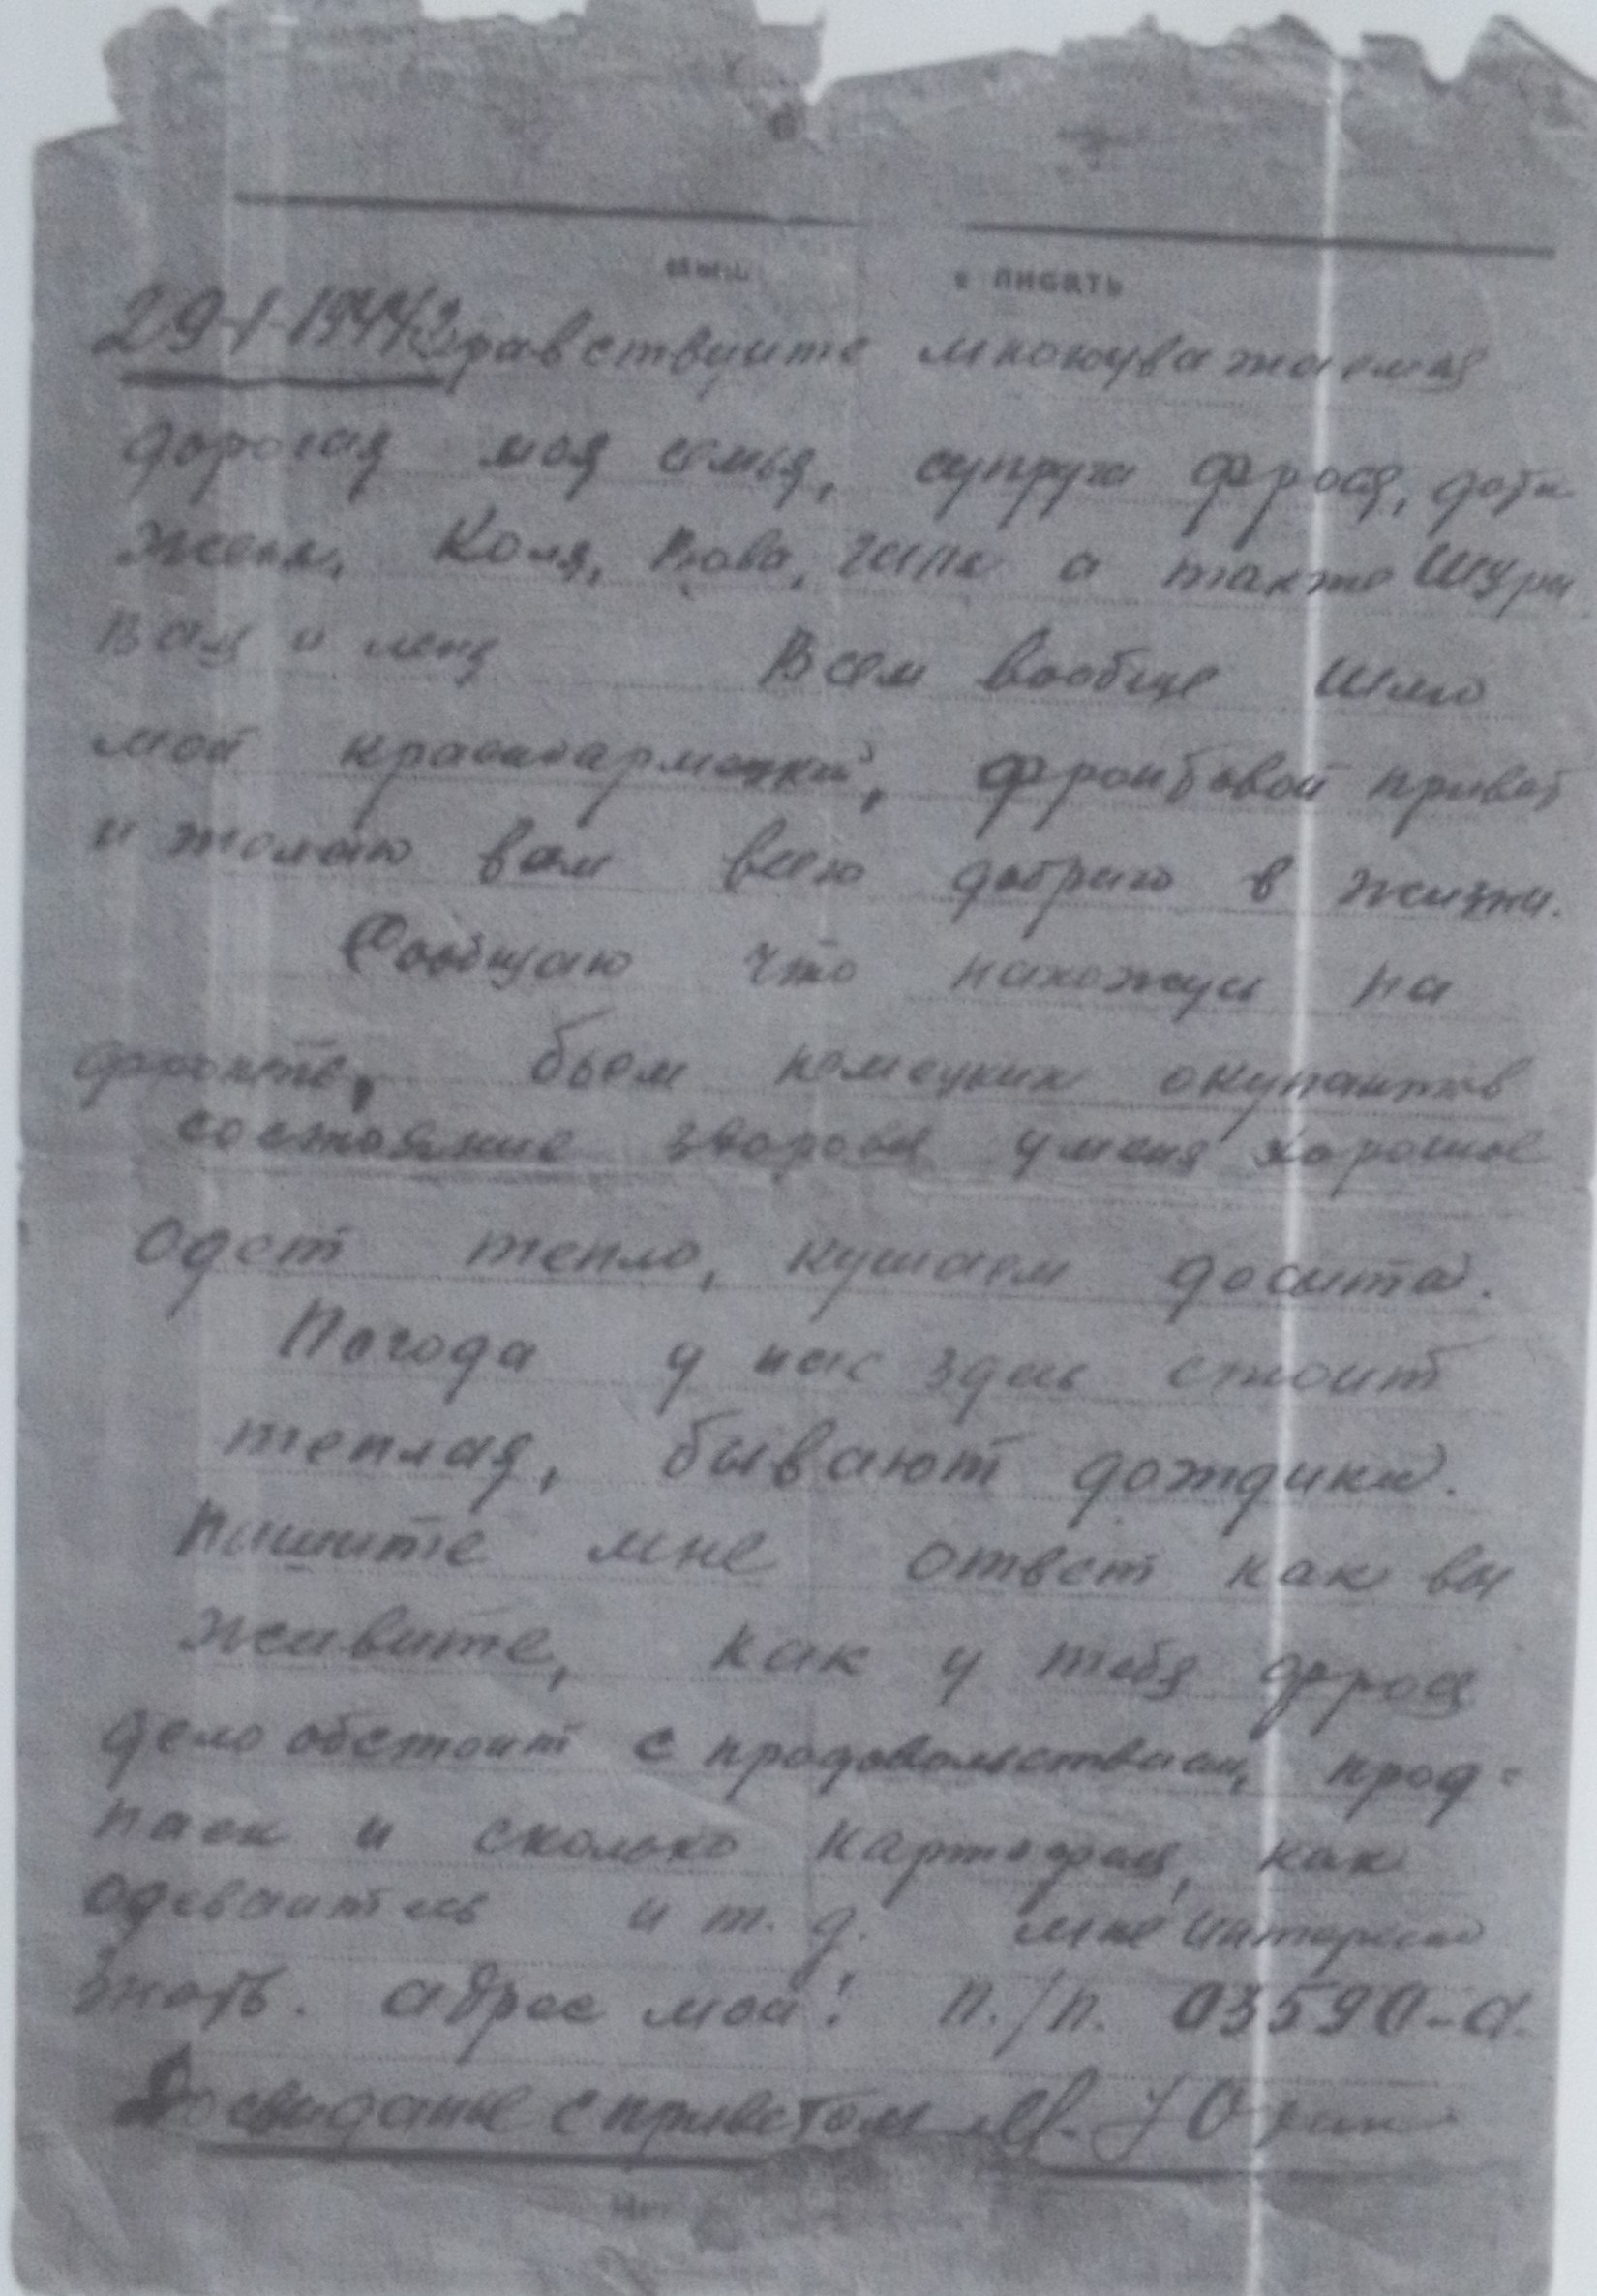 писать
29-I-1944 Здравствуйте многоуважаемая
дорогая моя семья, супруга Фрося, дети
Женя, Коля, Вова, Галя а также Шура
Вая и Лена Всем вообще шлю
мой красноармейский, фронтовой привет
и желаю вам всего доброго в жизни.
Сообщаю что нахожусь на
фронте, бьем немецких окупантов
состояние здоровя у меня хорошое
Одет тепло, кушаем досыта.
Погода у нас здесь стоит
теплая, бывают дождики.
Пишите мне ответ как вы
живите, как у тебя Фрося
дело обстоит с продовольствием, прод-
паек и сколько картофеля, как
одеваитесь и т. д. мне интересно
знать. адрес мой: п./п. 03590-а.
До свидание с приветом